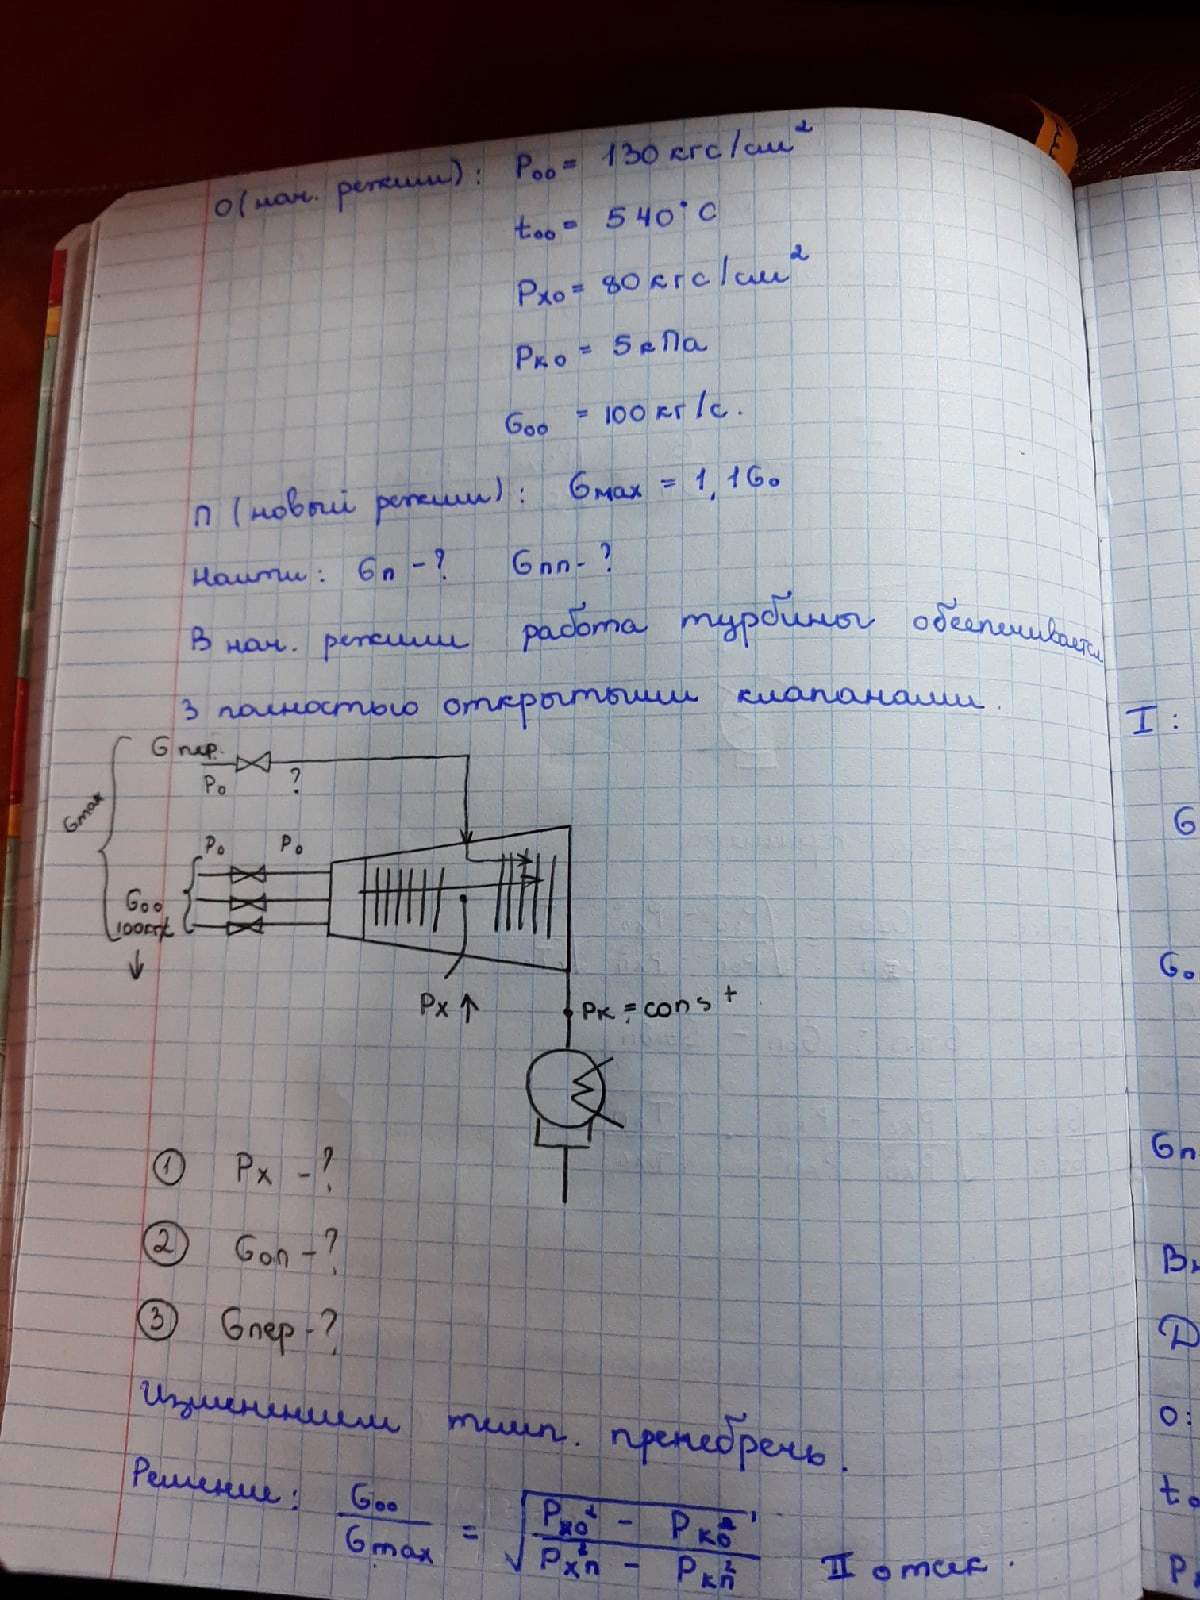 О (нач. режим): P₀₀ = 130 кгс/см²
t₀₀ = 540°С
Pх₀ = 80 кгс/см²
Pк₀ = 5 кПа
G₀₀ = 100 кг/с.
П (новый режим): Gmax = 1,1G₀
Найти: Gп - ? Gпп - ?
В нач. режим работа турбины обеспечивается
3 полностью открытыми клапанами.
Gпер.
P₀ ?
Gmax
P₀ P₀
G₀₀
Pх ↑
Pк = const
① Pх - ?
② G₀п - ?
③ Gпер - ?
Изменением темп. пренебречь.
Решение: G₀₀/Gmax = √(Pх₀² - Pк₀²)/(Pхп² - Pкп²) II отсек.
I:
G
G₀
Gп
Д
О:
t₀